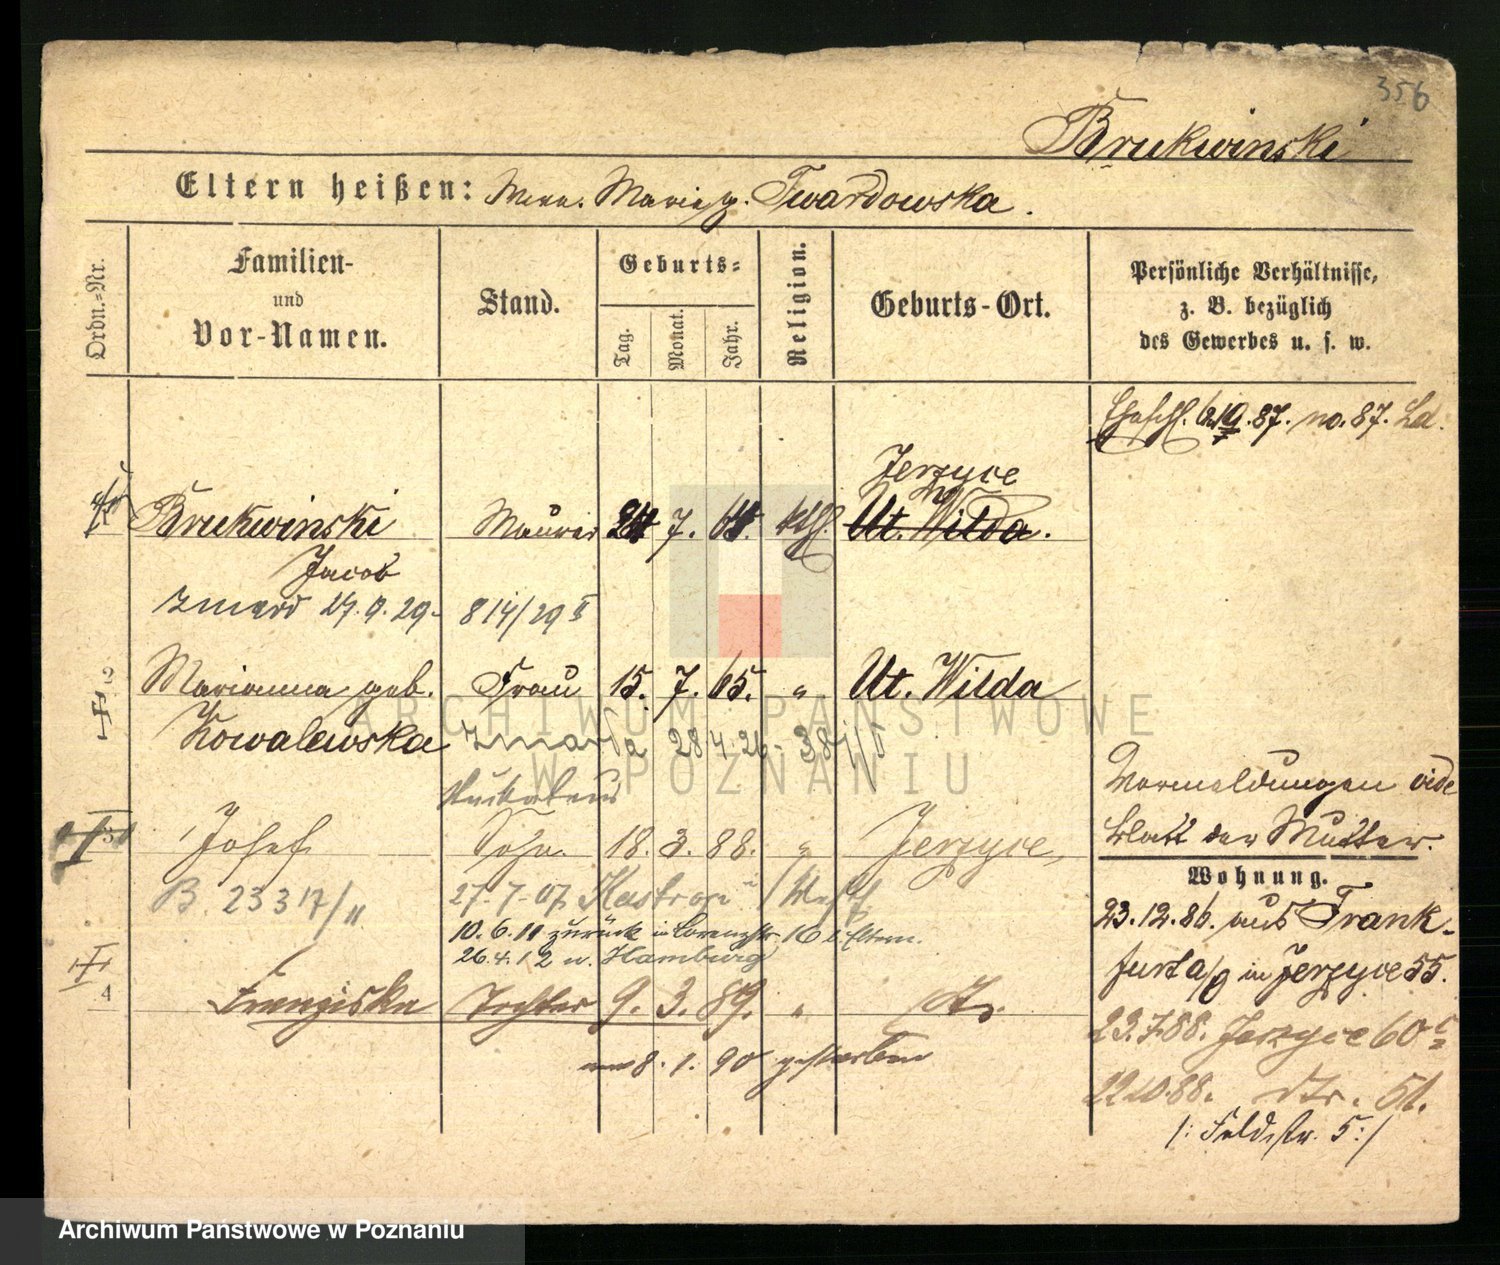 356
Brukwinski
Eltern heißen: Marie g. Twardowska.
Ordn.-Nr.
Familien- und Vor-Namen.
Stand.
Geburts-
Tag.
Monat.
Jahr.
Religion.
Geburts-Ort.
Persönliche Verhältnisse,
z. B. bezüglich
des Gewerbes u. s. w.
87. no. 87.
Jerzyce
Brukwinski Maurer 24 7. 64. kth. Ut. Wilda.
Jacob
zmarł 27.9.29- 814/29 II
2
Marianna geb. Frau 15. 7. 65. " Ut. Wilda
Kowalewska zmarła 28 4. 26-
3
Josef Sohn 18. 3. 88. " Jerzyce,
B. 23317/II 27-7-07 Kastrop i/Westf.
10.6.11 zurück in Lorenzstr. 16 b. Eltern.
26.4.12 n. Hamburg
4
Franziska Tochter 9. 3. 89. " Dto.
am 8. 1. 90 gestorben
Vormeldungen vide
Blatt der Mutter.
Wohnung.
23.12.86. aus Frank-
furt a/O in Jerzyce 55.
23.7.88. Jerzyce 60
22.10.88. Dto. 51.
/: Feldstr. 5 :/
ARCHIWUM PAŃSTWOWE
W POZNANIU
Archiwum Państwowe w Poznaniu